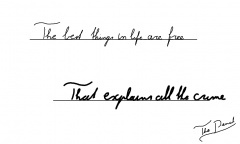 The best things in life are free
That explains all the crime